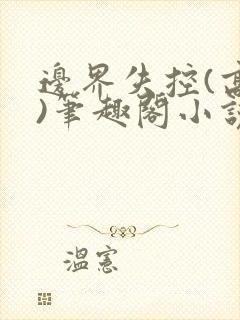 邊界失控(高
)筆趣閣小説
溫憲